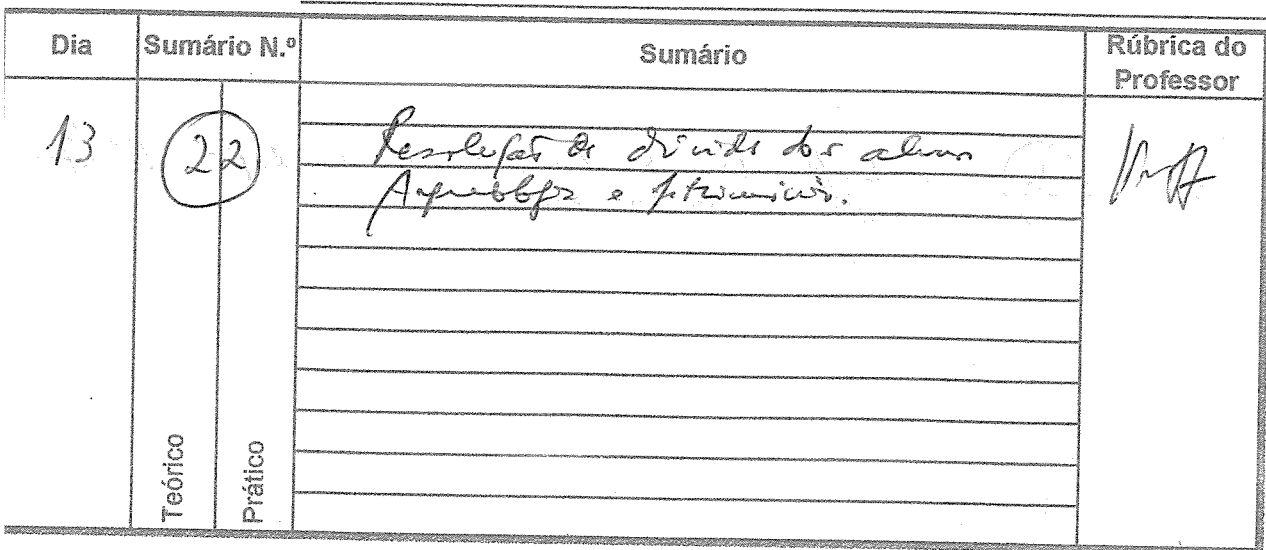 Dia
Sumário N.º
Sumário
Rúbrica do
Professor
13
22
Resolução de dúvidas dos alunos
Arqueologia e património.
Teórico
Prático